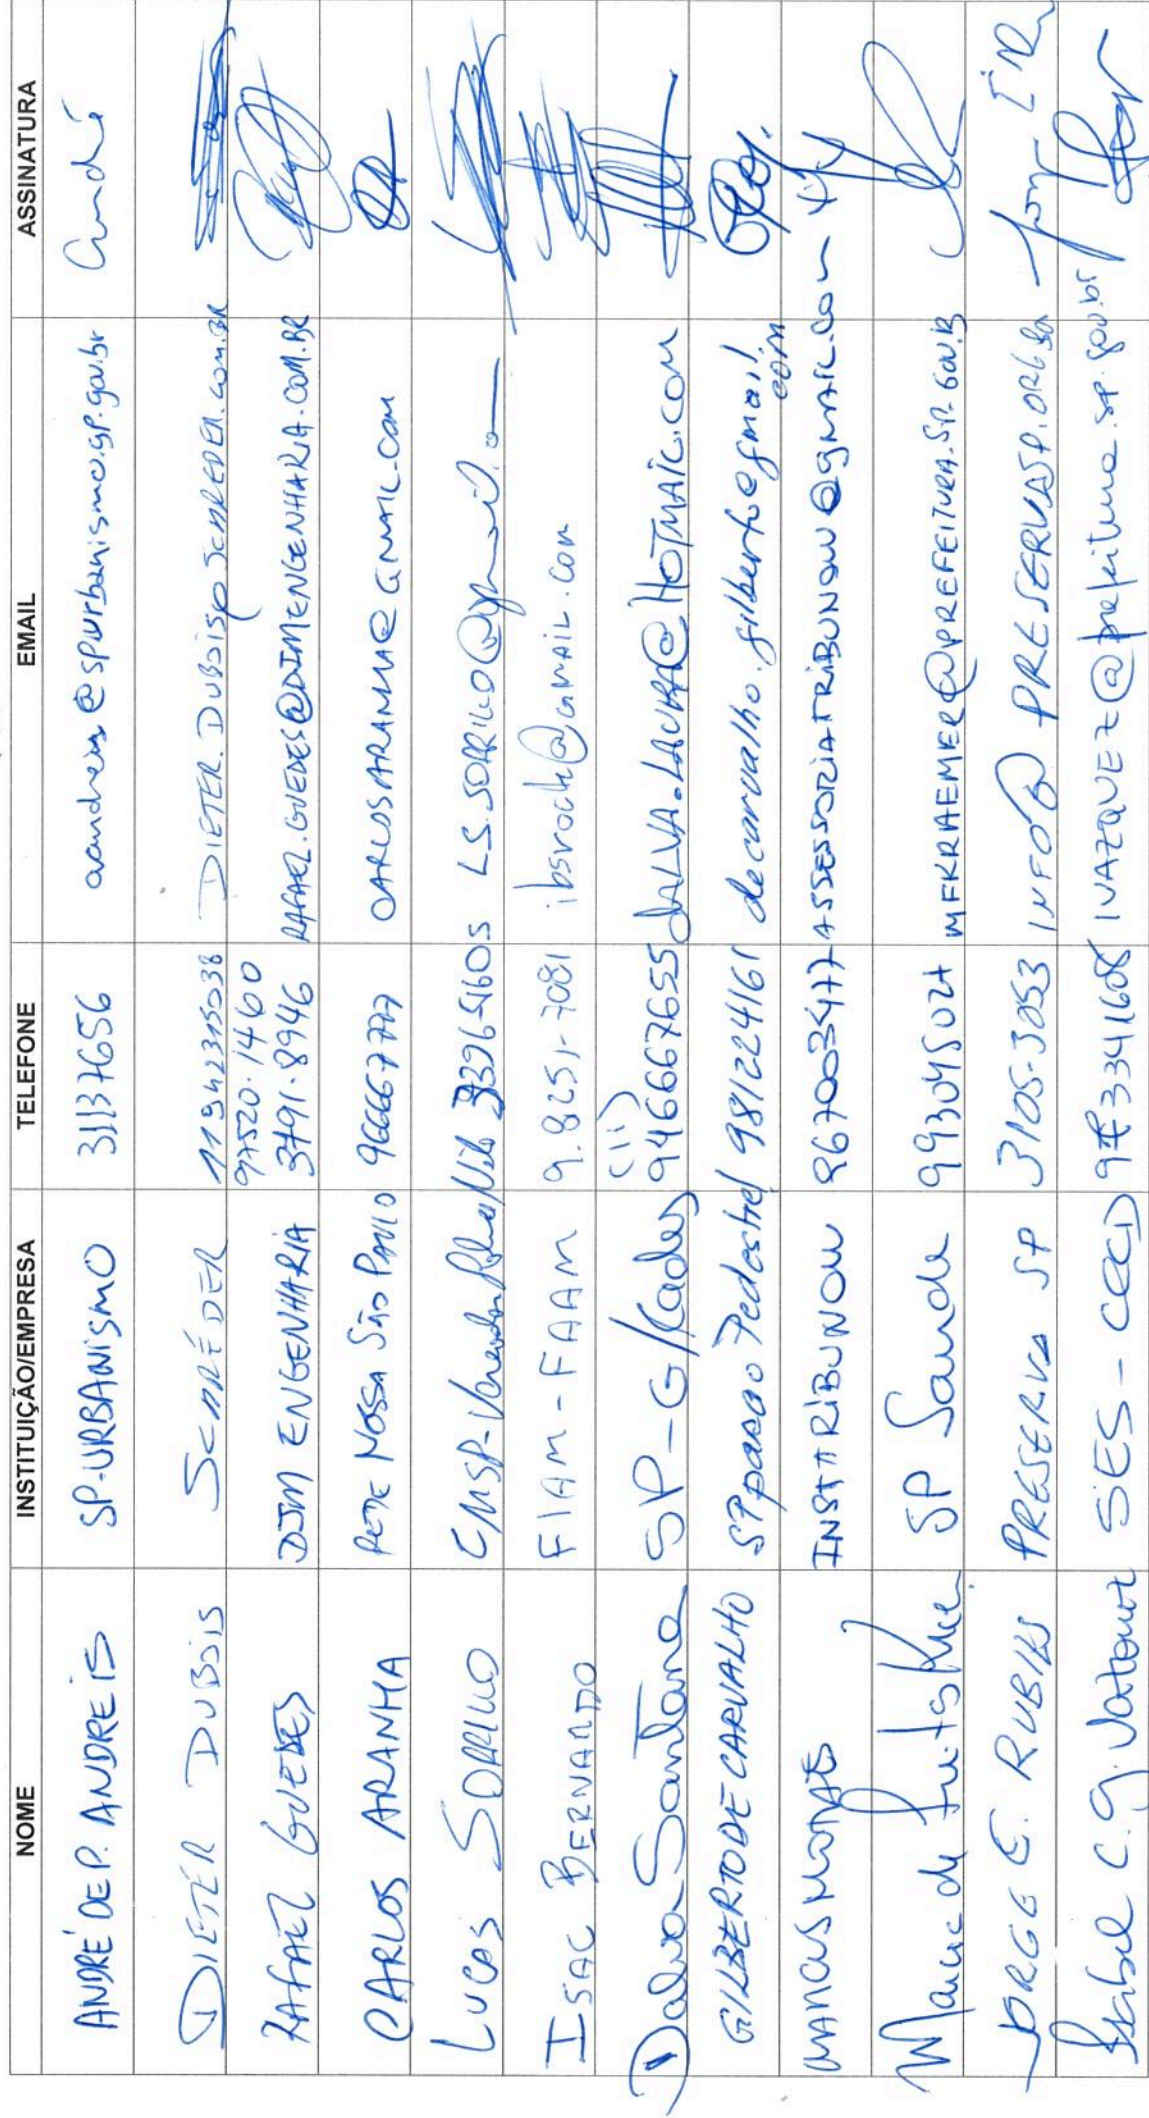 NOME INSTITUIÇÃO/EMPRESA TELEFONE EMAIL ASSINATURA
ANDRÉ DE P. ANDREIS SP-URBANISMO 31137656 aandreis@spurbanismo.sp.gov.br André
DIETER DUBOIS SCHRÉDER 11942315038 DIETER.DUBOIS@SCHREDER.COM.BR
97520.1460
RAFAEL GUEDES DJM ENGENHARIA 3791.8946 RAFAEL.GUEDES@DJMENGENHARIA.COM.BR
CARLOS ARANHA REDE NOSSA SÃO PAULO 966667777 CARLOSARANHA@GMAIL.COM
LUCAS SORRILLO CMSP-Vereador LS.SORRILLO@gmail.com
ISAC BERNARDO FIAM-FAAM 9.8251-7081 ibsrocha@GMAIL.COM
(11)
Dalva Santana SP-G/Cades 946667655 DALVA.LAURA@HOTMAIL.COM
GILBERTO DE CARVALHO SP passo Pedestre 981224161 decarvalho.gilberto@gmail.com
MARCUS MORAES INSTATRIBUNOW 967003477 ASSESSORIATRIBUNOW@gmail.com
Maria de Freitas SP Saude 993045024 MFKRAEMER@PREFEITURA.SP.GOV.BR
JORGE E. RUBIES PRESERVA SP 3105-3053 INFO@PRESERVASP.ORG.BR
Isabel C. G. SES - CCD IVAZQUEZ@prefeitura.sp.gov.br